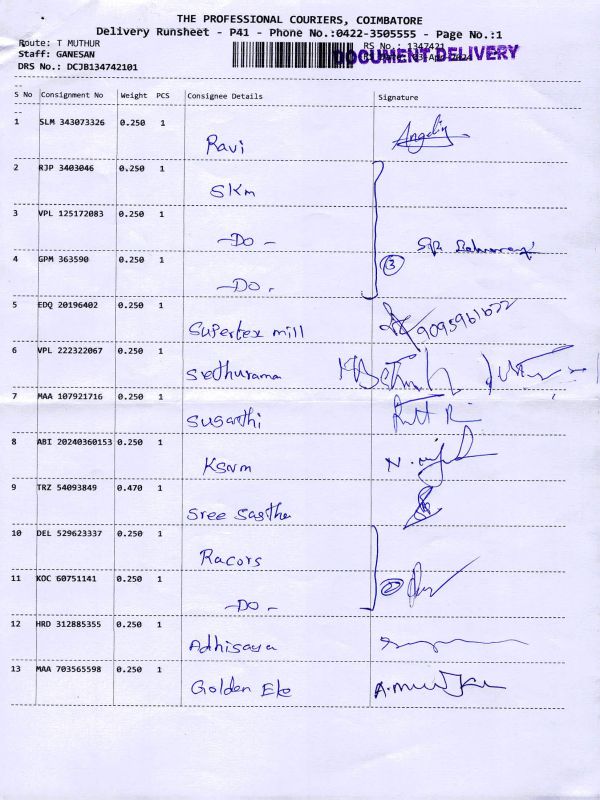 THE PROFESSIONAL COURIERS, COIMBATORE
Delivery Runsheet - P41 - Phone No.:0422-3505555 - Page No.:1
Route: T MUTHUR
RS No.: 1347421
Staff: GANESAN
DOCUMENT DELIVERY
DRS No.: DCJB134742101
S No Consignment No Weight PCS Consignee Details Signature
1 SLM 343073326 0.250 1 Ravi Angelin
2 RJP 3403046 0.250 1 SKm
3 VPL 125172083 0.250 1 -DO-
4 GPM 363590 0.250 1 -DO- 3
5 EDQ 20196402 0.250 1 Supertex mill 9095961622
6 VPL 222322067 0.250 1 Srethurama
7 MAA 107921716 0.250 1 Susarthi
8 ABI 20240360153 0.250 1 KSNM
9 TRZ 54093849 0.470 1 Sree Sastha
10 DEL 529623337 0.250 1 Racors
11 KOC 60751141 0.250 1 -DO- 2
12 HRD 312885355 0.250 1 Adhisaya
13 MAA 703565598 0.250 1 Golden Ele